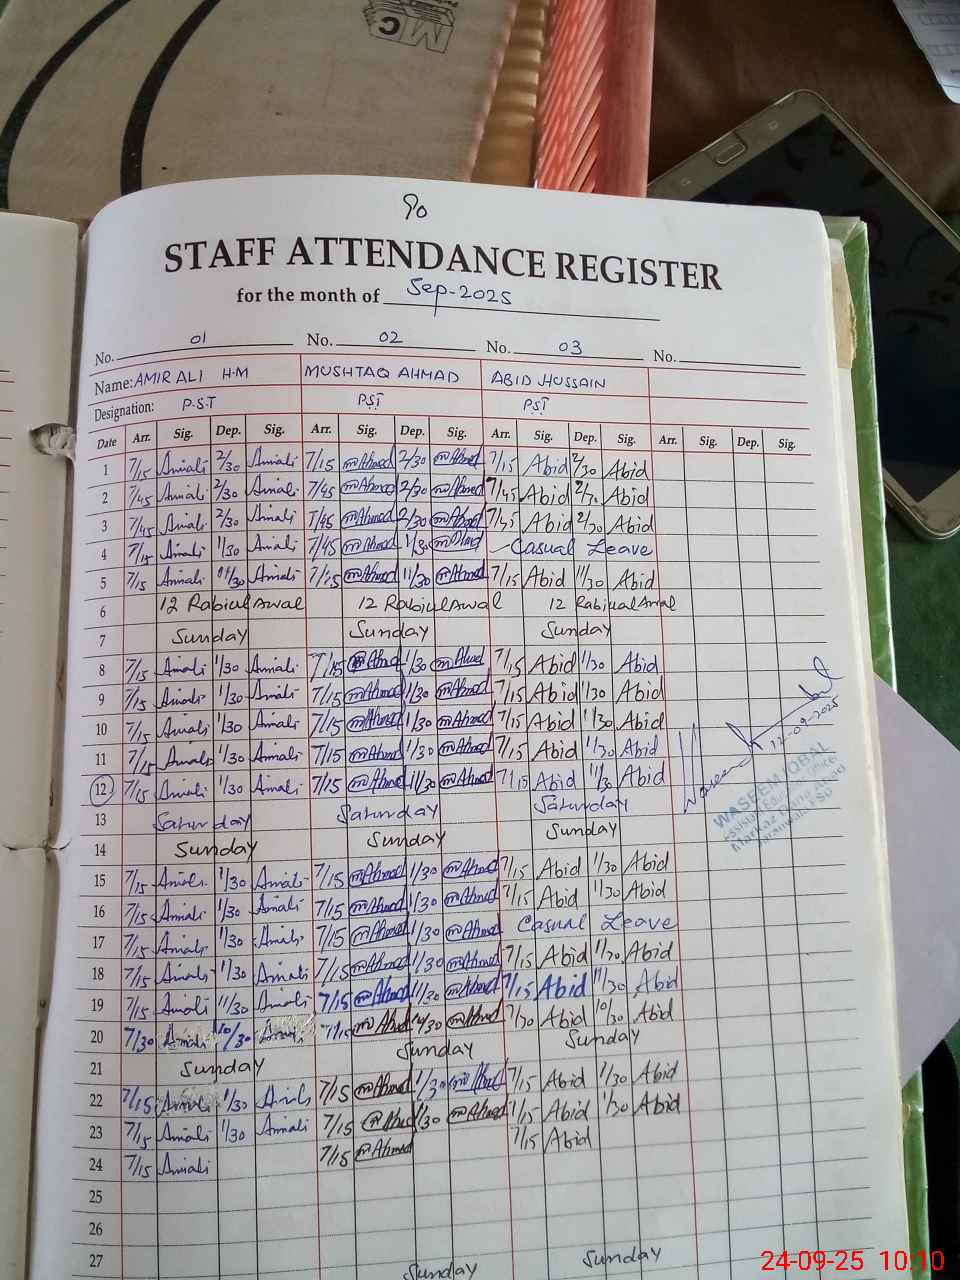 MC
90
STAFF ATTENDANCE REGISTER
for the month of Sep-2025
No. 01 No. 02 No. 03 No.
Name: AMIR ALI H.M MUSHTAQ AHMAD ABID HUSSAIN
Designation: P.S.T P.S.T P.S.T
Date Arr. Sig. Dep. Sig. Arr. Sig. Dep. Sig. Arr. Sig. Dep. Sig. Arr. Sig. Dep. Sig.
1 7/15 Amirali 2/30 Amirali 7/15 m Ahmad 2/30 m Ahmad 7/15 Abid 2/30 Abid
2 7/45 Amirali 2/30 Amirali 7/45 m Ahmad 2/30 m Ahmad 7/45 Abid Abid
3 7/45 Amirali 2/30 Amirali 7/45 m Ahmad 2/30 m Ahmad 7/45 Abid 2/30 Abid
4 7/15 Amirali 1/30 Amirali 7/45 m Ahmad 1/30 m Ahmad Casual Leave
5 7/15 Amirali 11/30 Amirali m Ahmad 11/30 m Ahmad 7/15 Abid 11/30 Abid
6 12 Rabiul Awal 12 Rabiul Awal 12 Rabiual Awal
7 Sunday Sunday Sunday
8 7/15 Amirali 1/30 Amirali 7/15 m Ahmad 1/30 m Ahmad 7/15 Abid 1/30 Abid
9 7/15 Amirali 1/30 Amirali 7/15 m Ahmad 1/30 m Ahmad 7/15 Abid 1/30 Abid
10 7/15 Amirali 1/30 Amirali 7/15 m Ahmad 1/30 m Ahmad 7/15 Abid 1/30 Abid
11 7/15 Amirali 1/30 Amirali 7/15 m Ahmad 1/30 m Ahmad 7/15 Abid 1/30 Abid
12 7/15 Amirali 1/30 Amirali 7/15 m Ahmad 11/30 m Ahmad 7/15 Abid 11/30 Abid
12-09-2025
WASEEM IQBAL
13 Saturday Saturday Saturday
14 Sunday Sunday Sunday
15 7/15 Amirali 1/30 Amirali 7/15 m Ahmad 1/30 m Ahmad 7/15 Abid 1/30 Abid
16 7/15 Amirali 1/30 Amirali 7/15 m Ahmad 1/30 m Ahmad 7/15 Abid 11/30 Abid
17 7/15 Amirali 1/30 Amirali 7/15 m Ahmad 1/30 m Ahmad Casual Leave
18 7/15 Amirali 1/30 Amirali 7/15 m Ahmad 1/30 m Ahmad 7/15 Abid 1/30 Abid
19 7/15 Amirali 11/30 Amirali 7/15 m Ahmad 11/30 m Ahmad 7/15 Abid 11/30 Abid
20 7/30 Amirali 10/30 7/15 m Ahmad 10/30 m Ahmad 7/30 Abid 10/30 Abid
21 Sunday Sunday Sunday
22 7/15 Amirali 1/30 Amirali 7/15 m Ahmad 1/30 m Ahmad 7/15 Abid 1/30 Abid
23 7/15 Amirali 1/30 Amirali 7/15 m Ahmad 1/30 m Ahmad 7/15 Abid 1/30 Abid
24 7/15 Amirali 7/15 m Ahmad 7/15 Abid
25
26
27 Sunday Sunday
24-09-25 10:10